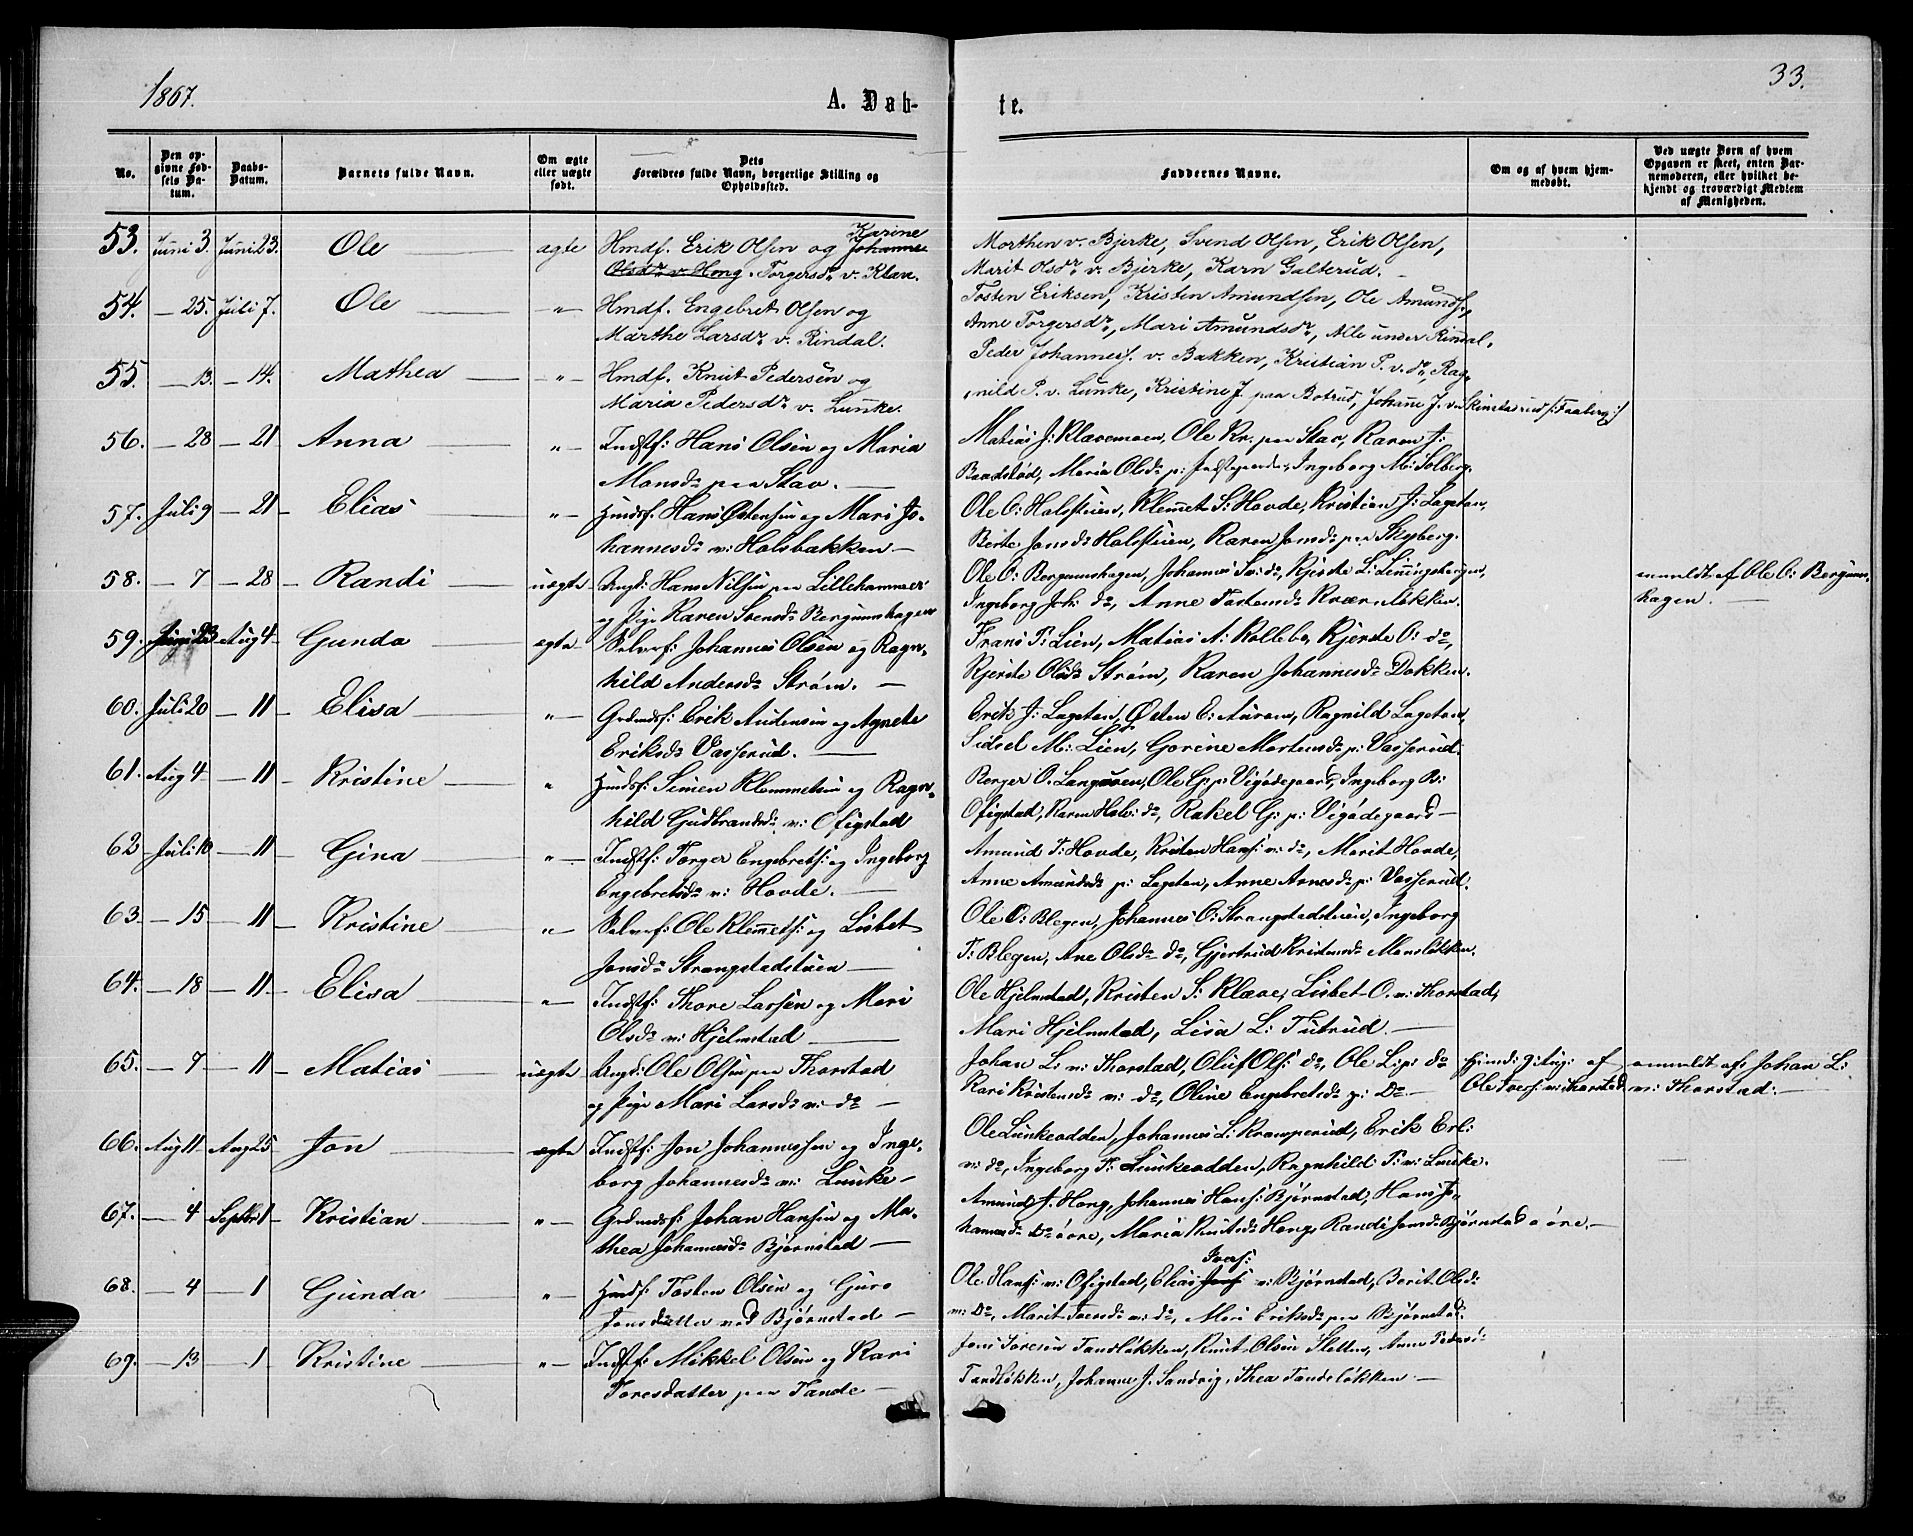 1867.
A. Døb-
te.
33.
No.
Den op-
givne Fød-
sels Da-
tum.
Daabs-
Datum.
Barnets fulde Navn.
Om ægte
eller uægte
født.
Dets
Forældres fulde Navn, borgerlige Stilling og
Opholdssted.
Faddernes Navne.
Om og af hvem hjem-
medøbt.
Ved uægte Børn af hvem
Opgaven er skeet, enten Bar-
nemoderen, eller hvilket be-
kjendt og troværdigt Medlem
af Menigheden.
53. Juni 3. Juni 23. Ole ægte Hmdf. Erik Olsen og Karine Johanne
Olsdr. v. Hong Torgersdr. v. Klæv.
Morthen v. Bjerke, Svend Olsen, Erik Olsen,
Marit Olsdr. v. Bjerke, Karn Galterud.
54. — 25. Juli 7. Ole —"— Hmdf. Engebret Olsen og
Marthe Larsdr. v. Rindal.
Tosten Eriksen, Kristen Amundsen, Ole Amundsf.,
Anne Torgersdr., Mari Amundsdr., Alle under Rindal.
55. — 13. — 14. Mathea —"— Hmdf. Knut Pedersen og
Maria Pedersdr. v. Lunke.
Peder Johannesf. v. Bakken, Kristian P. v. do., Rag-
nild P. v. Lunke, Kristine J. paa Botrud, Johane J. v. Skinstarud /: Faaberg :/
56. — 28 — 21 Anna "— Indstf: Hans Olsen og Maria
Monsdr paa Stav. —
Matias J: Klævemoen, Ole Kr. paa Stav, Karen J:
Baadstød, Maria Olsdr p: , Ingeborg M: Solberg.
57. Juli 9 — 21 Elias "— Huusf. Hans Østensen og Mari Jo-
hannesdr v: Holsbakken. —
Ole O: Holsstuen, Klemet S: Hovde, Kristian J: Lageton,
Berte Jonsdr Holsstuen, Karen Jonsdr paa Skyberg.
58. — 7 — 28 — Randi uægte Ungk: Hans Nilsen paa Lillehammer
og Pige Karen Svensdr Bergumshagen
Ole O: Bergumshagen, Johannes Sv: do, Kjerste L: Linningsbergen,
Ingeborg Joh: do, Anne Tostensdr Kværnløkken.
anmeldt af Ole O: Bergums-
hagen. —
59. Juni 23 Aug 4 Gunda ægte Selverf: Johannes Olsen og Ragn-
hild Andersdr Strøm. —
Frans P: Lien, Matias A: Kolleba, Kjerste O: do,
Kjerste Olsdr Strøm, Karen Johannesdr Dokken.
60. Juli 20 — 11 — Elisa "— Grdmdsf: Erik Audensen og Agnete
Eriksdr Vasserud. —
Erik J: Lageton, Østen E: Auren, Ragnild Lageton,
Sidsel M: Lien, Gorine Mortensdr p: Vasserud.
61. Aug 4 — 11 — Kristine " Huusf: Simen Klemmetsen og Ragn-
hild Gudbrandsdr v: Ofigstad
Borger O. , Ole G: p: Vigødegaard, Ingeborg B:
Ofigstad, Karen Halv: do, Rakel G: p: Vigødegaard —
62 Juli 10 — 11 — Gina "— Indstf: Torger Engebretsf: og Ingeborg
Engebretsdr v: Hovde. —
Amund T: Hovde, Kristen Hansf: v: do, Marit Hovde,
Anne Amundsdr p: Lageton, Anne Arnesdr p: Vasserud.
63. — 15 — 11 — Kristine "— Selverf: Ole Klemmetsf: og Lisbet
Jonsdr Strangstadstuen —
Ole O: Blegen, Johannes O: Strangstadstuen, Ingeborg
T: Blegen, Ane Olsdr do, Gjertrud Kristensdr Monsløkken.
64. — 18 — 11. — Elisa "— Indstf: Thore Larsen og Mari
Olsdr v: Hjelmstad —
Ole Hjelmstad, Kristen S: Klæve, Lisbet O. v: Thorstad,
Mari Hjelmstad, Lisa L: Tutrud. —
65. — 7 — 11 — Matias uægte Ungk: Ole Olsen paa Thorstad
og Pige Mari Larsdr v: do —
Johan L: v: Thorstad, Oluf Olsf: do, Ole L: p: do
Kari Kristensdr v: do, Oline Engebretsdr p: Do. —
af
Ole Iversf: v: Thorstad
anmeldt af: Johan L:
v: Thorstad. —
66. Aug 11 Aug 25 Jon ægte Indstf: Jon Johannessen og Inge-
borg Johannesdr v: Lunke —
Ole Lunkeodden, Johannes L: Kramperud, Erik Erl:
v: do, Ingeborg P: Lunkeodden, Ragnhild P: v: Lunke.
67. — 4 Septbr 1 — Kristian "— Grdmdsf: Johan Hansen og Ma-
thea Johannesdr Bjørnstad —
Amund J. Hong, Johannes Hansf: Bjørnstad, Hans Jo-
hannesf: Do øvre, Maria Knutsdr Hong, Randi Jonsdr Bjørnstad øvre. —
68. — 4 — 1 Gunda "— Huusf: Tosten Olsen og Guro
Jonsdatter ved Bjørnstad —
Ole Hansf: v: Ofigstad, Elias Jonsf Iversf: v: Bjørnstad, Berit Olsdr
v: Do, Marit Toresdr v: do, Mari Eriksdr paa Bjørnstad.
69. — 13 — 1 Kristine "— Indstf: Mikkel Olsen og Kari
Toresdatter paa Tande —
Jens Toresen Tandløkken, Knut Olsen Sletten, Anne Pedersdr
Tandløkken, Johanne J. Sandvig, Thea Tandeløkken —